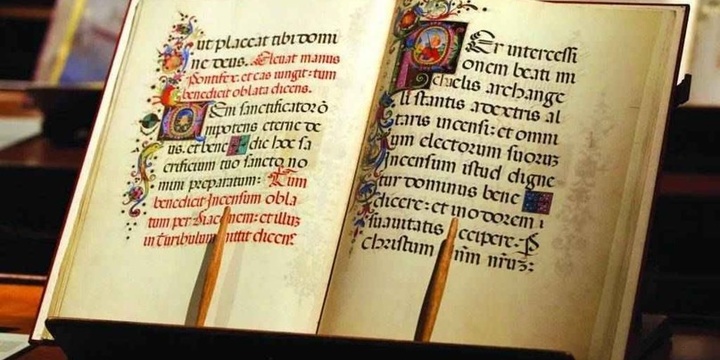 ut placeat tibi domi
ne deus. Eleuat manus
Pontifex. et eas ungit: tum
benedicit oblata dicens.
Ueni sanctificator o
mnipotens eterne de
us. et bene dic hoc sa
crificium tuo sancto no
mini preparatum: Tum
benedicit Incensum obla
tum per et illud
in turibulum mittit dicens:
Per intercessi
onem beati mi
chaelis archange
li stantis a dextris al
taris incensi: et omni
um electorum suorum
incensum istud digne
tur dominus bene
dicere: et in odorem
suauitatis accipere. P
christum nrm: